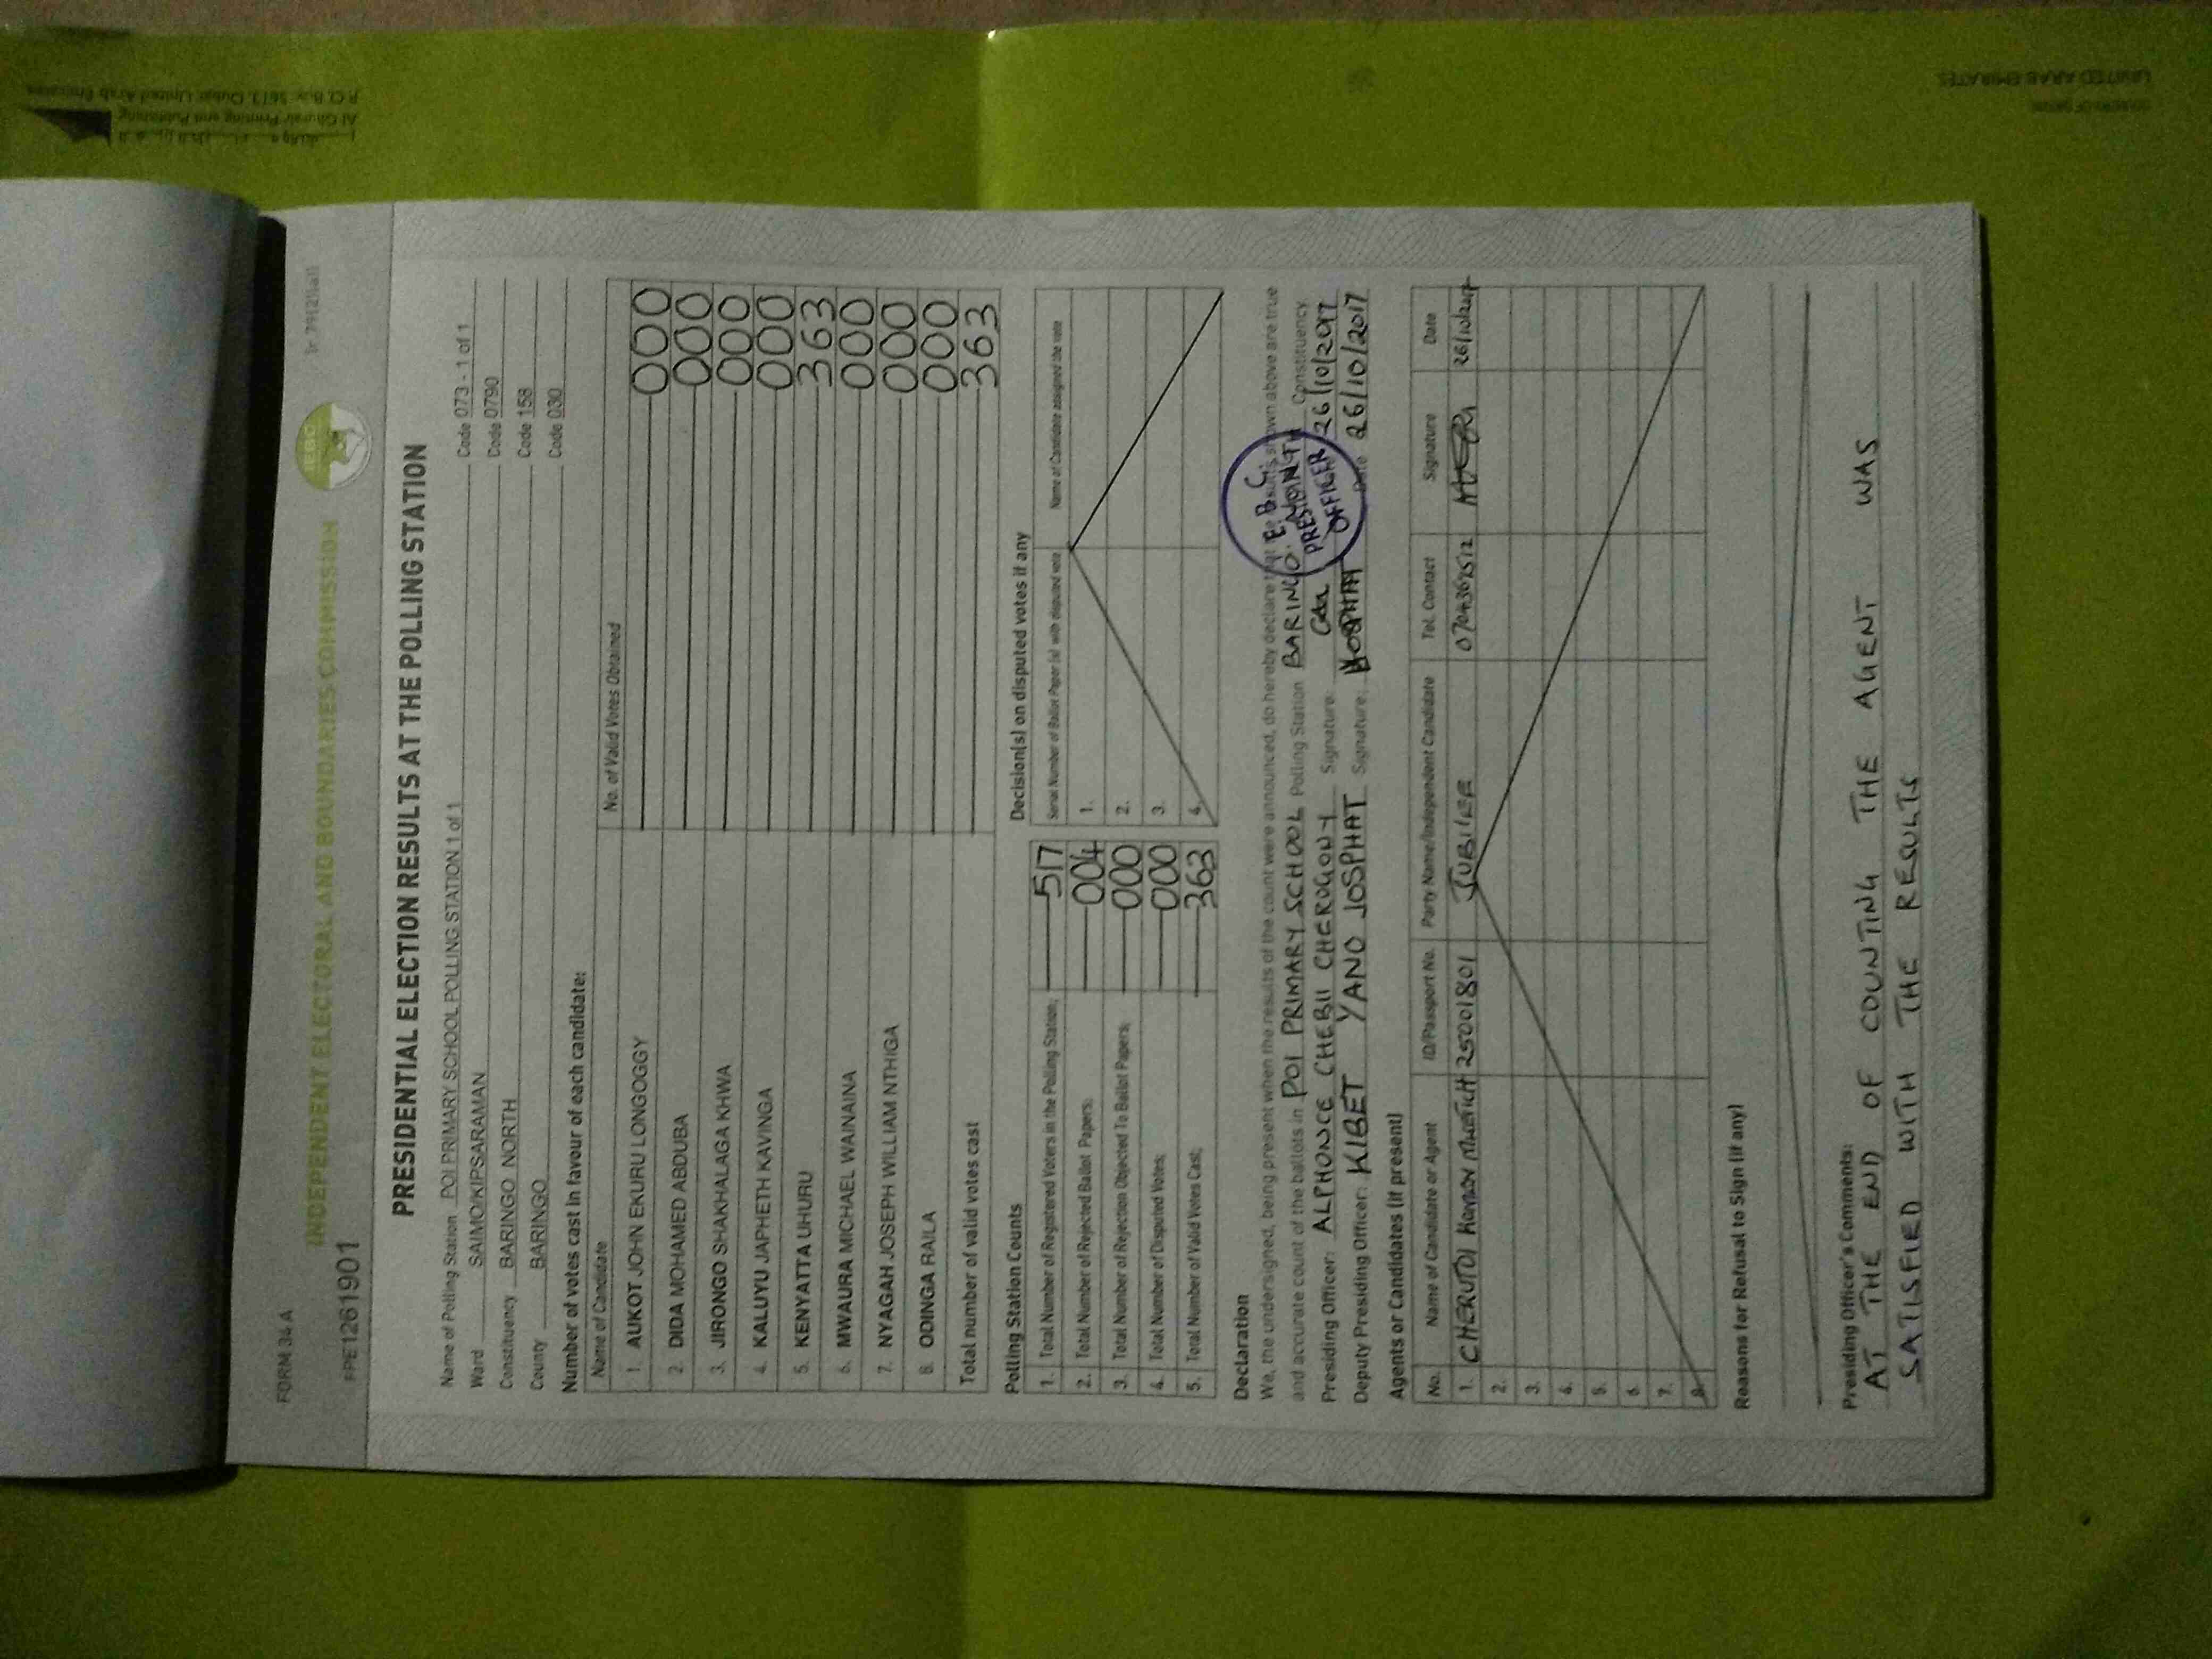 FORM 34 A
INDEPENDENT ELECTORAL AND BOUNDARIES COMMISSION
IEBC
FPE1261901
PRESIDENTIAL ELECTION RESULTS AT THE POLLING STATION
Name of Polling Station POI PRIMARY SCHOOL POLLING STATION 1 of 1 Code 073 - 1 of 1
Ward SAIMO/KIPSARAMAN Code 0790
Constituency BARINGO NORTH Code 158
County BARINGO Code 030
Number of votes cast in favour of each candidate:
Name of Candidate No. of Valid Votes Obtained
1. AUKOT JOHN EKURU LONGOGGY 000
2. DIDA MOHAMED ABDUBA 000
3. JIRONGO SHAKHALAGA KHWA 000
4. KALUYU JAPHETH KAVINGA 000
5. KENYATTA UHURU 363
6. MWAURA MICHAEL WAINAINA 000
7. NYAGAH JOSEPH WILLIAM NTHIGA 000
8. ODINGA RAILA 000
Total number of valid votes cast 363
Polling Station Counts
1. Total Number of Registered Voters in the Polling Station; 517
2. Total Number of Rejected Ballot Papers; 004
3. Total Number of Rejection Objected To Ballot Papers; 000
4. Total Number of Disputed Votes; 000
5. Total Number of Valid Votes Cast; 363
Decision(s) on disputed votes if any
Serial Number of Ballot Paper (s) with disputed vote Name of Candidate assigned the vote
1.
2.
3.
4.
Declaration
We, the undersigned, being present when the results of the count were announced, do hereby declare that the results shown above are true
and accurate count of the ballots in POI PRIMARY SCHOOL Polling Station BARINGO NORTH Constituency.
Presiding Officer: ALPHONCE CHEBII CHEROGONY Signature: 26/10/2017
Deputy Presiding Officer: KIBET YANO JOSPHAT Signature: Date 26/10/2017
E.B.C.
PRESIDING
OFFICER
Agents or Candidates (if present)
No. Name of Candidate or Agent ID/Passport No. Party Name/Independent Candidate Tel. Contact Signature Date
1. CHERUTOI 25001801 JUBILEE 0704369512 26/10/2017
2.
3.
4.
5.
6
7.
8.
Reasons for Refusal to Sign (if any)
Presiding Officer's Comments:
AT THE END OF COUNTING THE AGENT WAS
SATISFIED WITH THE RESULTS
UNITED ARAB EMIRATES
Al Ghurair Printing and Publishing
P.O. Box: 5613, Dubai, United Arab Emirates